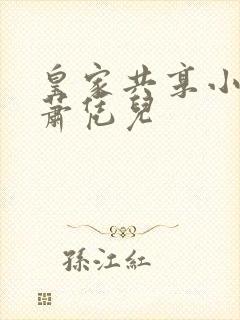 皇家共享小
蕭凭兒
孫江紅